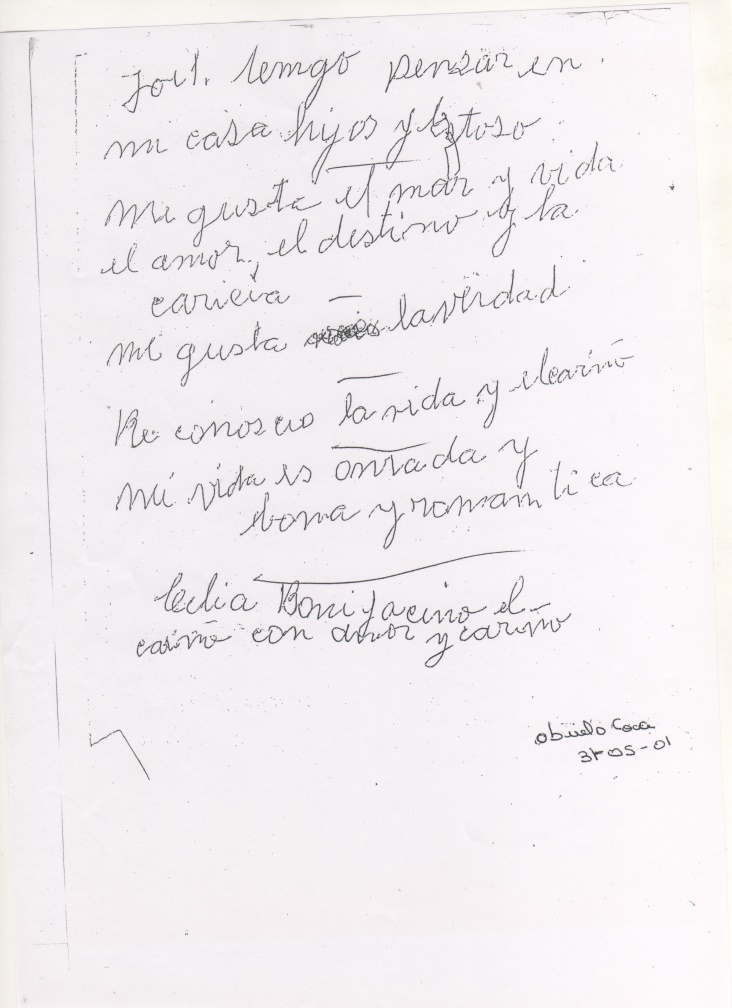 temgo penzar en.
mi casa hijos y
Me gusta el mar y vida
el amor, el destino y la
caricia —
me gusta la verdad
Re conosco la vida y el cariño
mi vida es onrada y
bona y romamtica
Celia Bonifacino el
cariño con amor y cariño
abuelo Coca
31-05-01